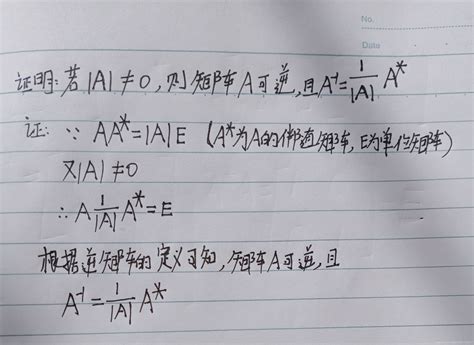 No.
Date
证明:若|A|≠0,则矩阵A可逆,且A⁻¹=1/|A| A*
证:∵ AA*=|A|E (A*为A的伴随矩阵,E为单位矩阵)
又|A|≠0
∴ A 1/|A| A*=E
根据逆矩阵的定义可知,矩阵A可逆,且
A⁻¹=1/|A| A*